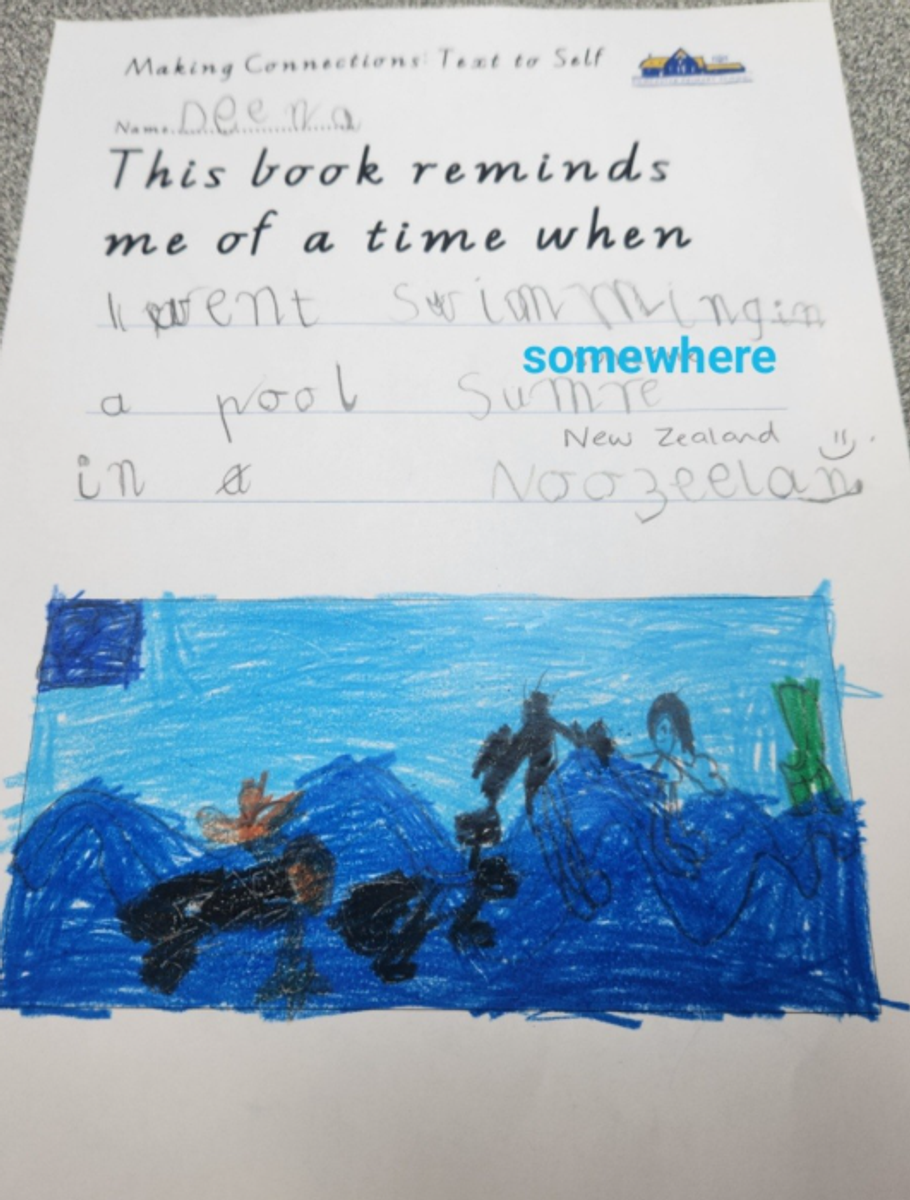 Making Connections: Text to Self
Name Deena
This book reminds
me of a time when
I went Swimming in
somewhere
a pool Sumre
New Zealand
in a Noozeelan